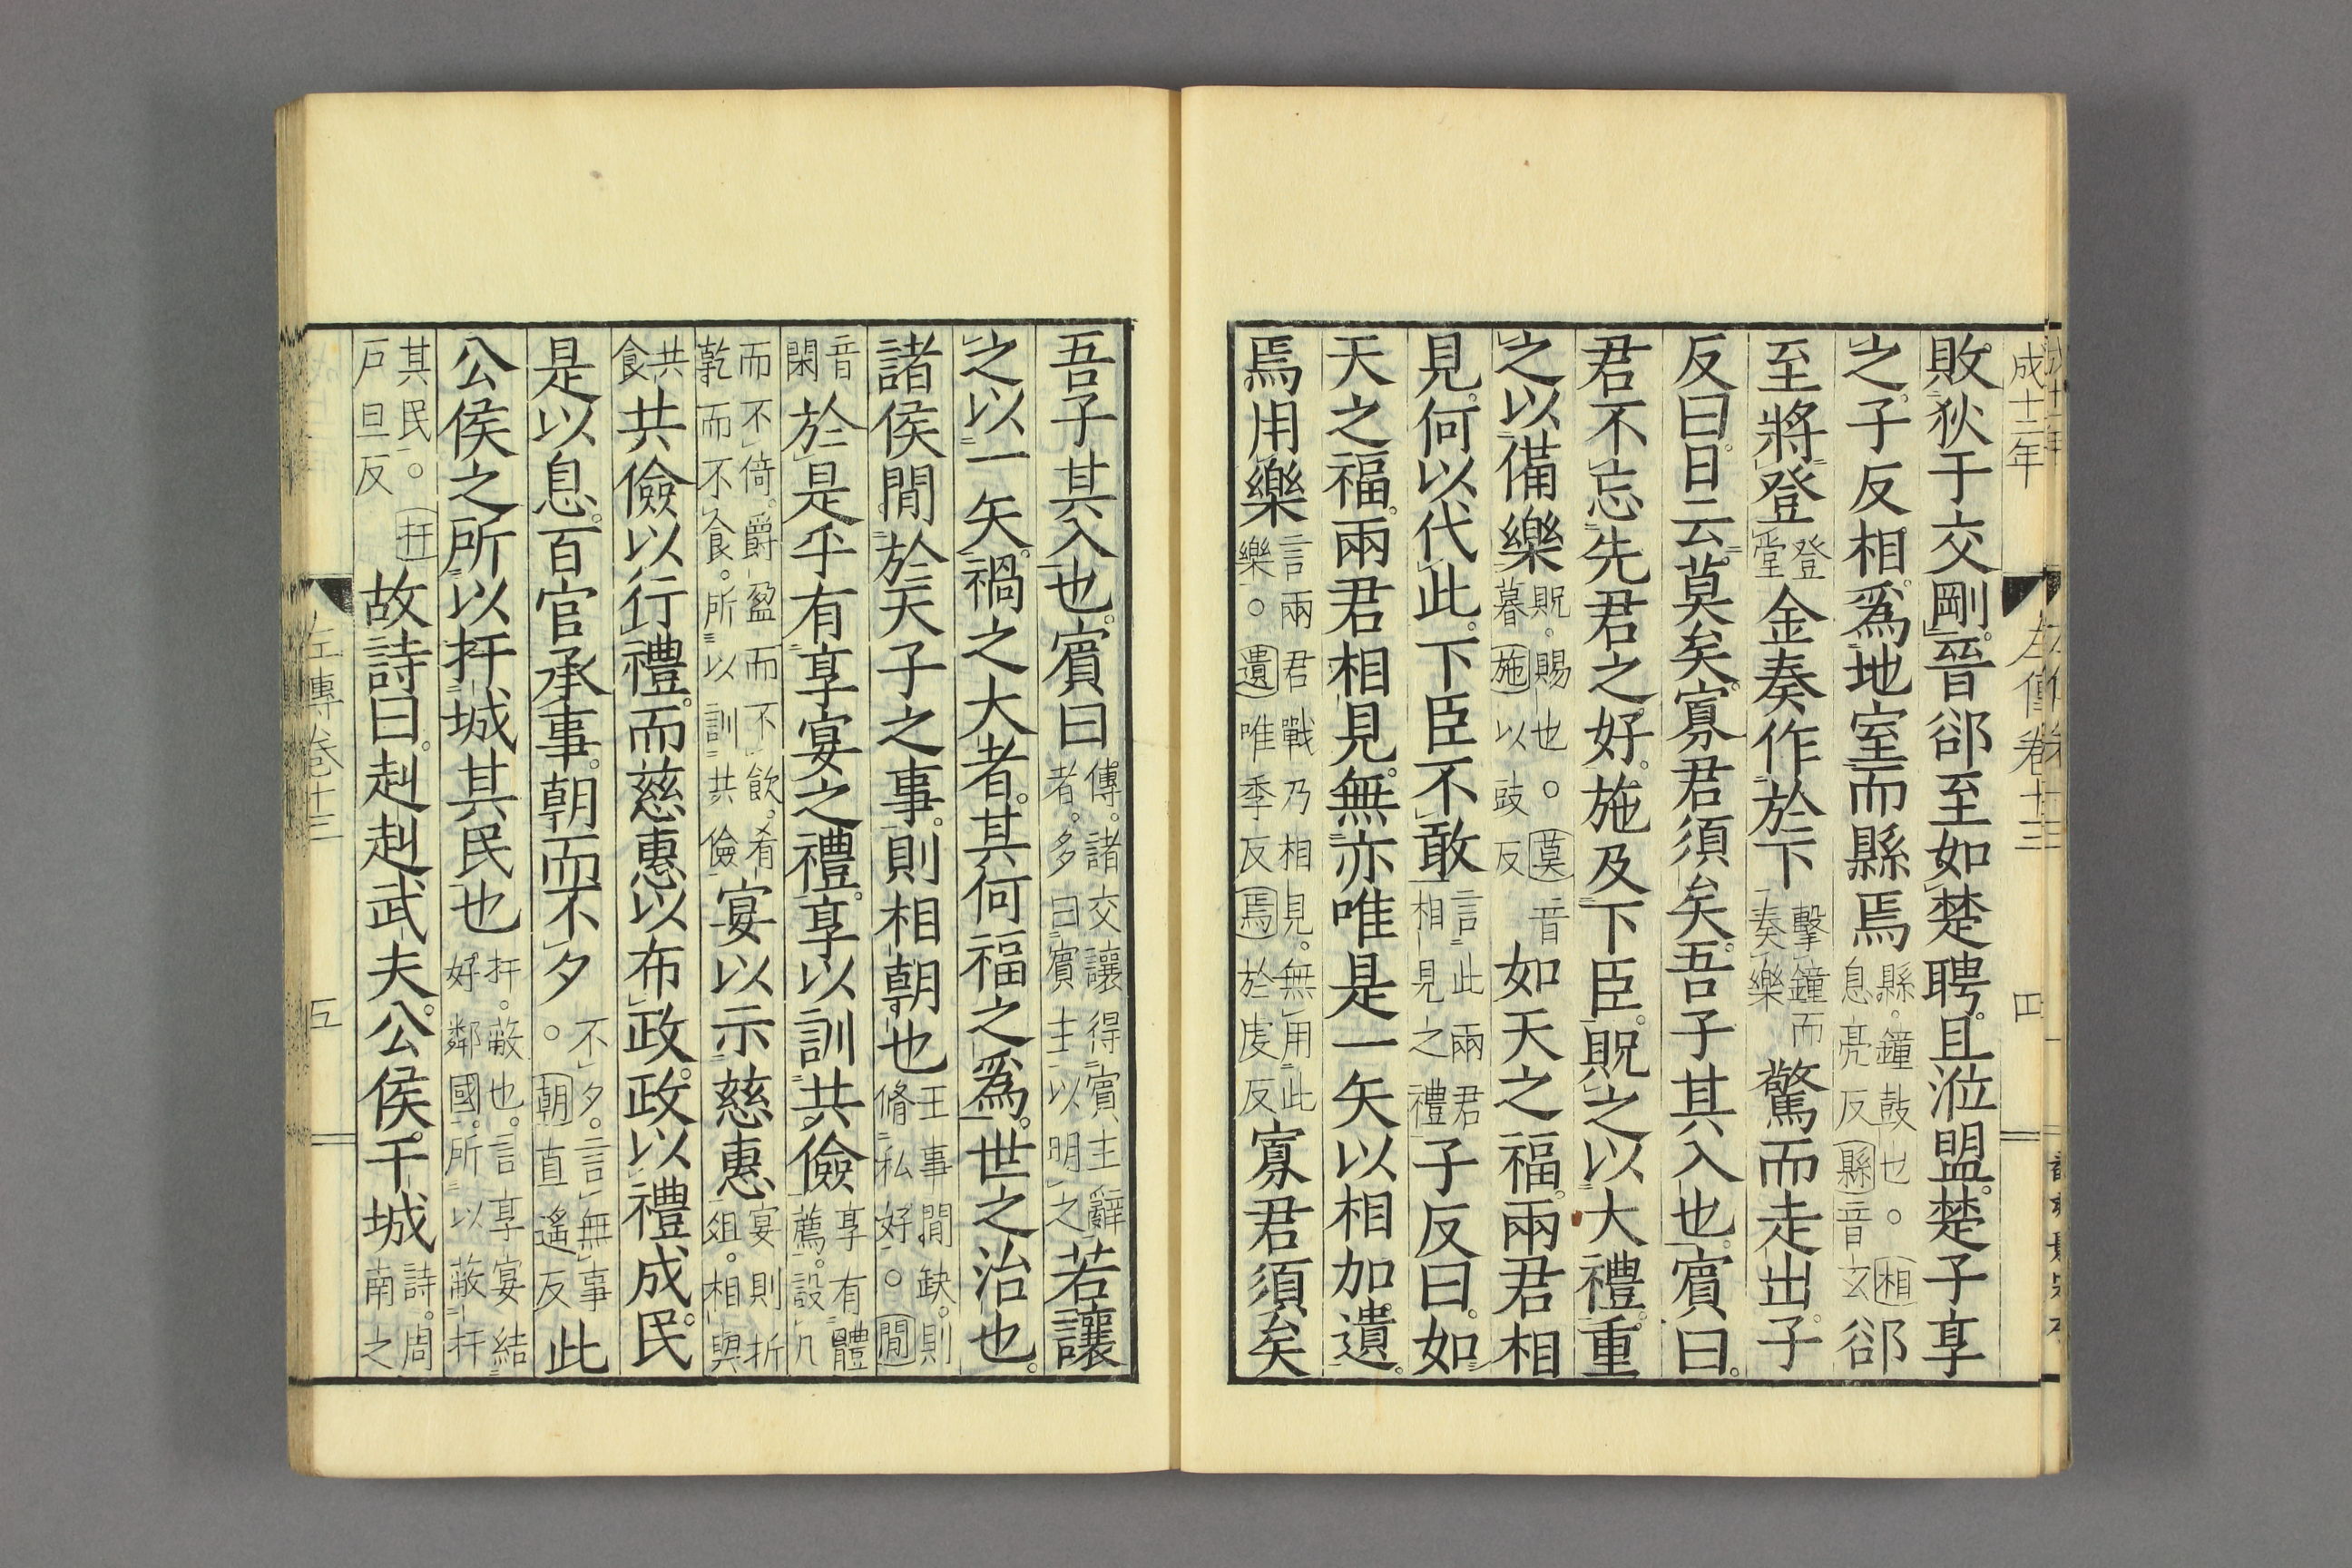 成十二年
左傳卷十三
四
敗狄于交剛晉郤至如楚聘且涖盟楚子享
之子反相爲地室而縣焉縣鐘鼓也○相息亮反縣音玄郤
至將登登堂金奏作於下擊鐘而奏樂驚而走出子
反曰日云莫矣寡君須矣吾子其入也賓曰
君不忘先君之好施及下臣貺之以大禮重
之以備樂貺賜也○莫音暮施以豉反如天之福兩君相
見何以代此下臣不敢言此兩君相見之禮子反曰如
天之福兩君相見無亦唯是一矢以相加遺
焉用樂言兩君戰乃相見無用此樂○遺唯季反焉於虔反寡君須矣
吾子其入也賓曰傳諸交讓得賓主辭者多曰賓主以明之若讓
之以一矢禍之大者其何福之爲世之治也
諸侯閒於天子之事則相朝也王事閒缺則脩私好○閒
音閑於是乎有享宴之禮享以訓共儉享有體薦設几
而不倚爵盈而不飲肴乾而不食所以訓共儉宴以示慈惠宴則折俎相與
共食共儉以行禮而慈惠以布政政以禮成民
是以息百官承事朝而不夕不夕言無事○朝直遙反此
公侯之所以扞城其民也扞蔽也言享宴結好鄰國所以蔽扞
其民○扞戶旦反故詩曰赳赳武夫公侯干城詩周南之
左傳卷十三
五